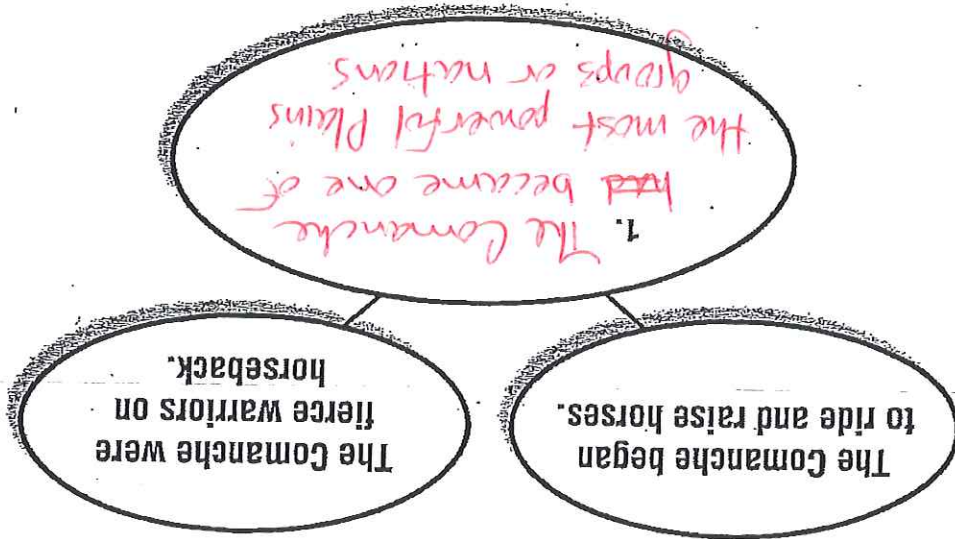 The Comanche began
to ride and raise horses.
The Comanche were
fierce warriors on
horseback.
1. The Comanche
had became one of
the most powerful Plains
groups or nations